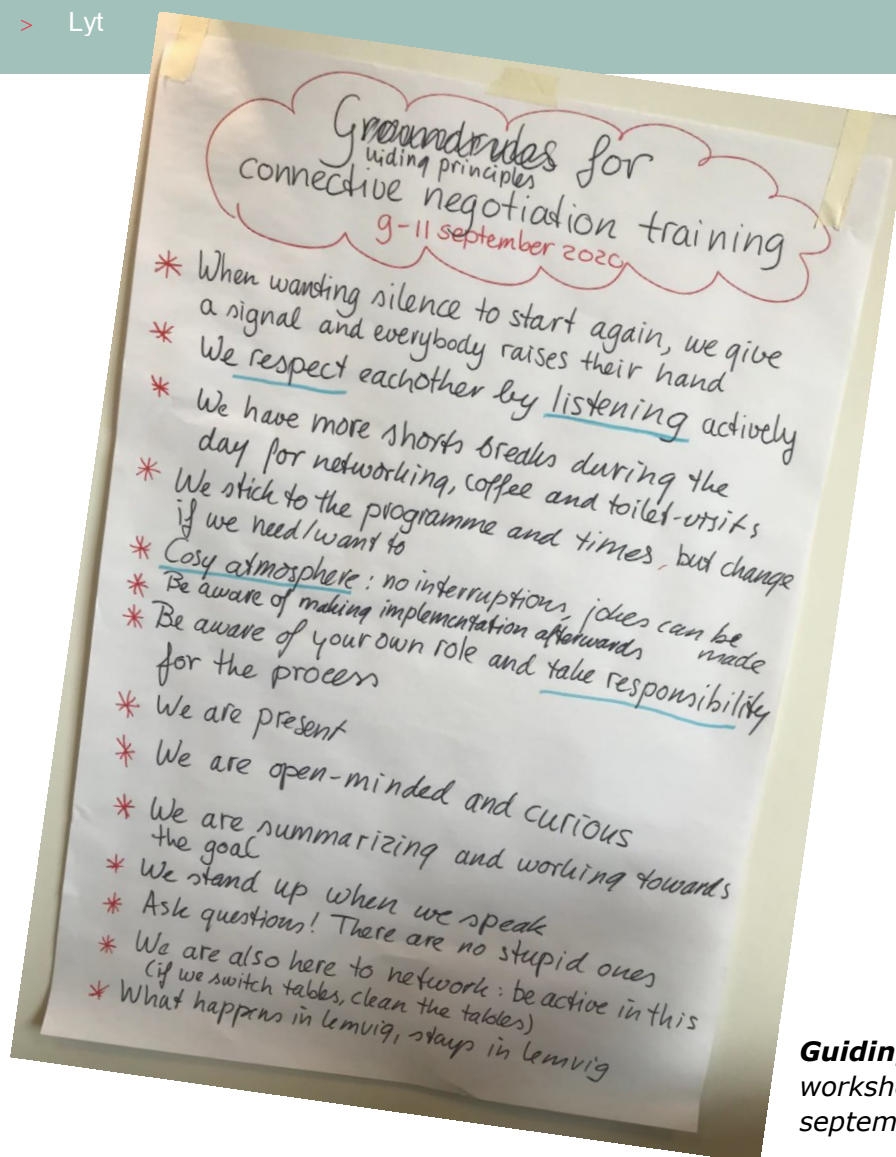 > Lyt
Groundrules for
uiding principles
connective negotiation training
9-11 september 2020
* When wanting silence to start again, we give
a signal and everybody raises their hand
* We respect eachother by listening actively
* We have more shorts breaks during the
day for networking, coffee and toilet-visits
* We stick to the programme and times, but change
if we need/want to
* Cosy atmosphere: no interruptions, jokes can be
made
* Be aware of making implementation afterwards
* Be aware of your own role and take responsibility
for the process
* We are present
* We are open-minded and curious
* We are summarizing and working towards
the goal
* We stand up when we speak
* Ask questions! There are no stupid ones
* We are also here to network: be active in this
(if we switch tables, clean the tables)
* What happens in lemvig, stays in lemvig
Guidin
worksh
septem